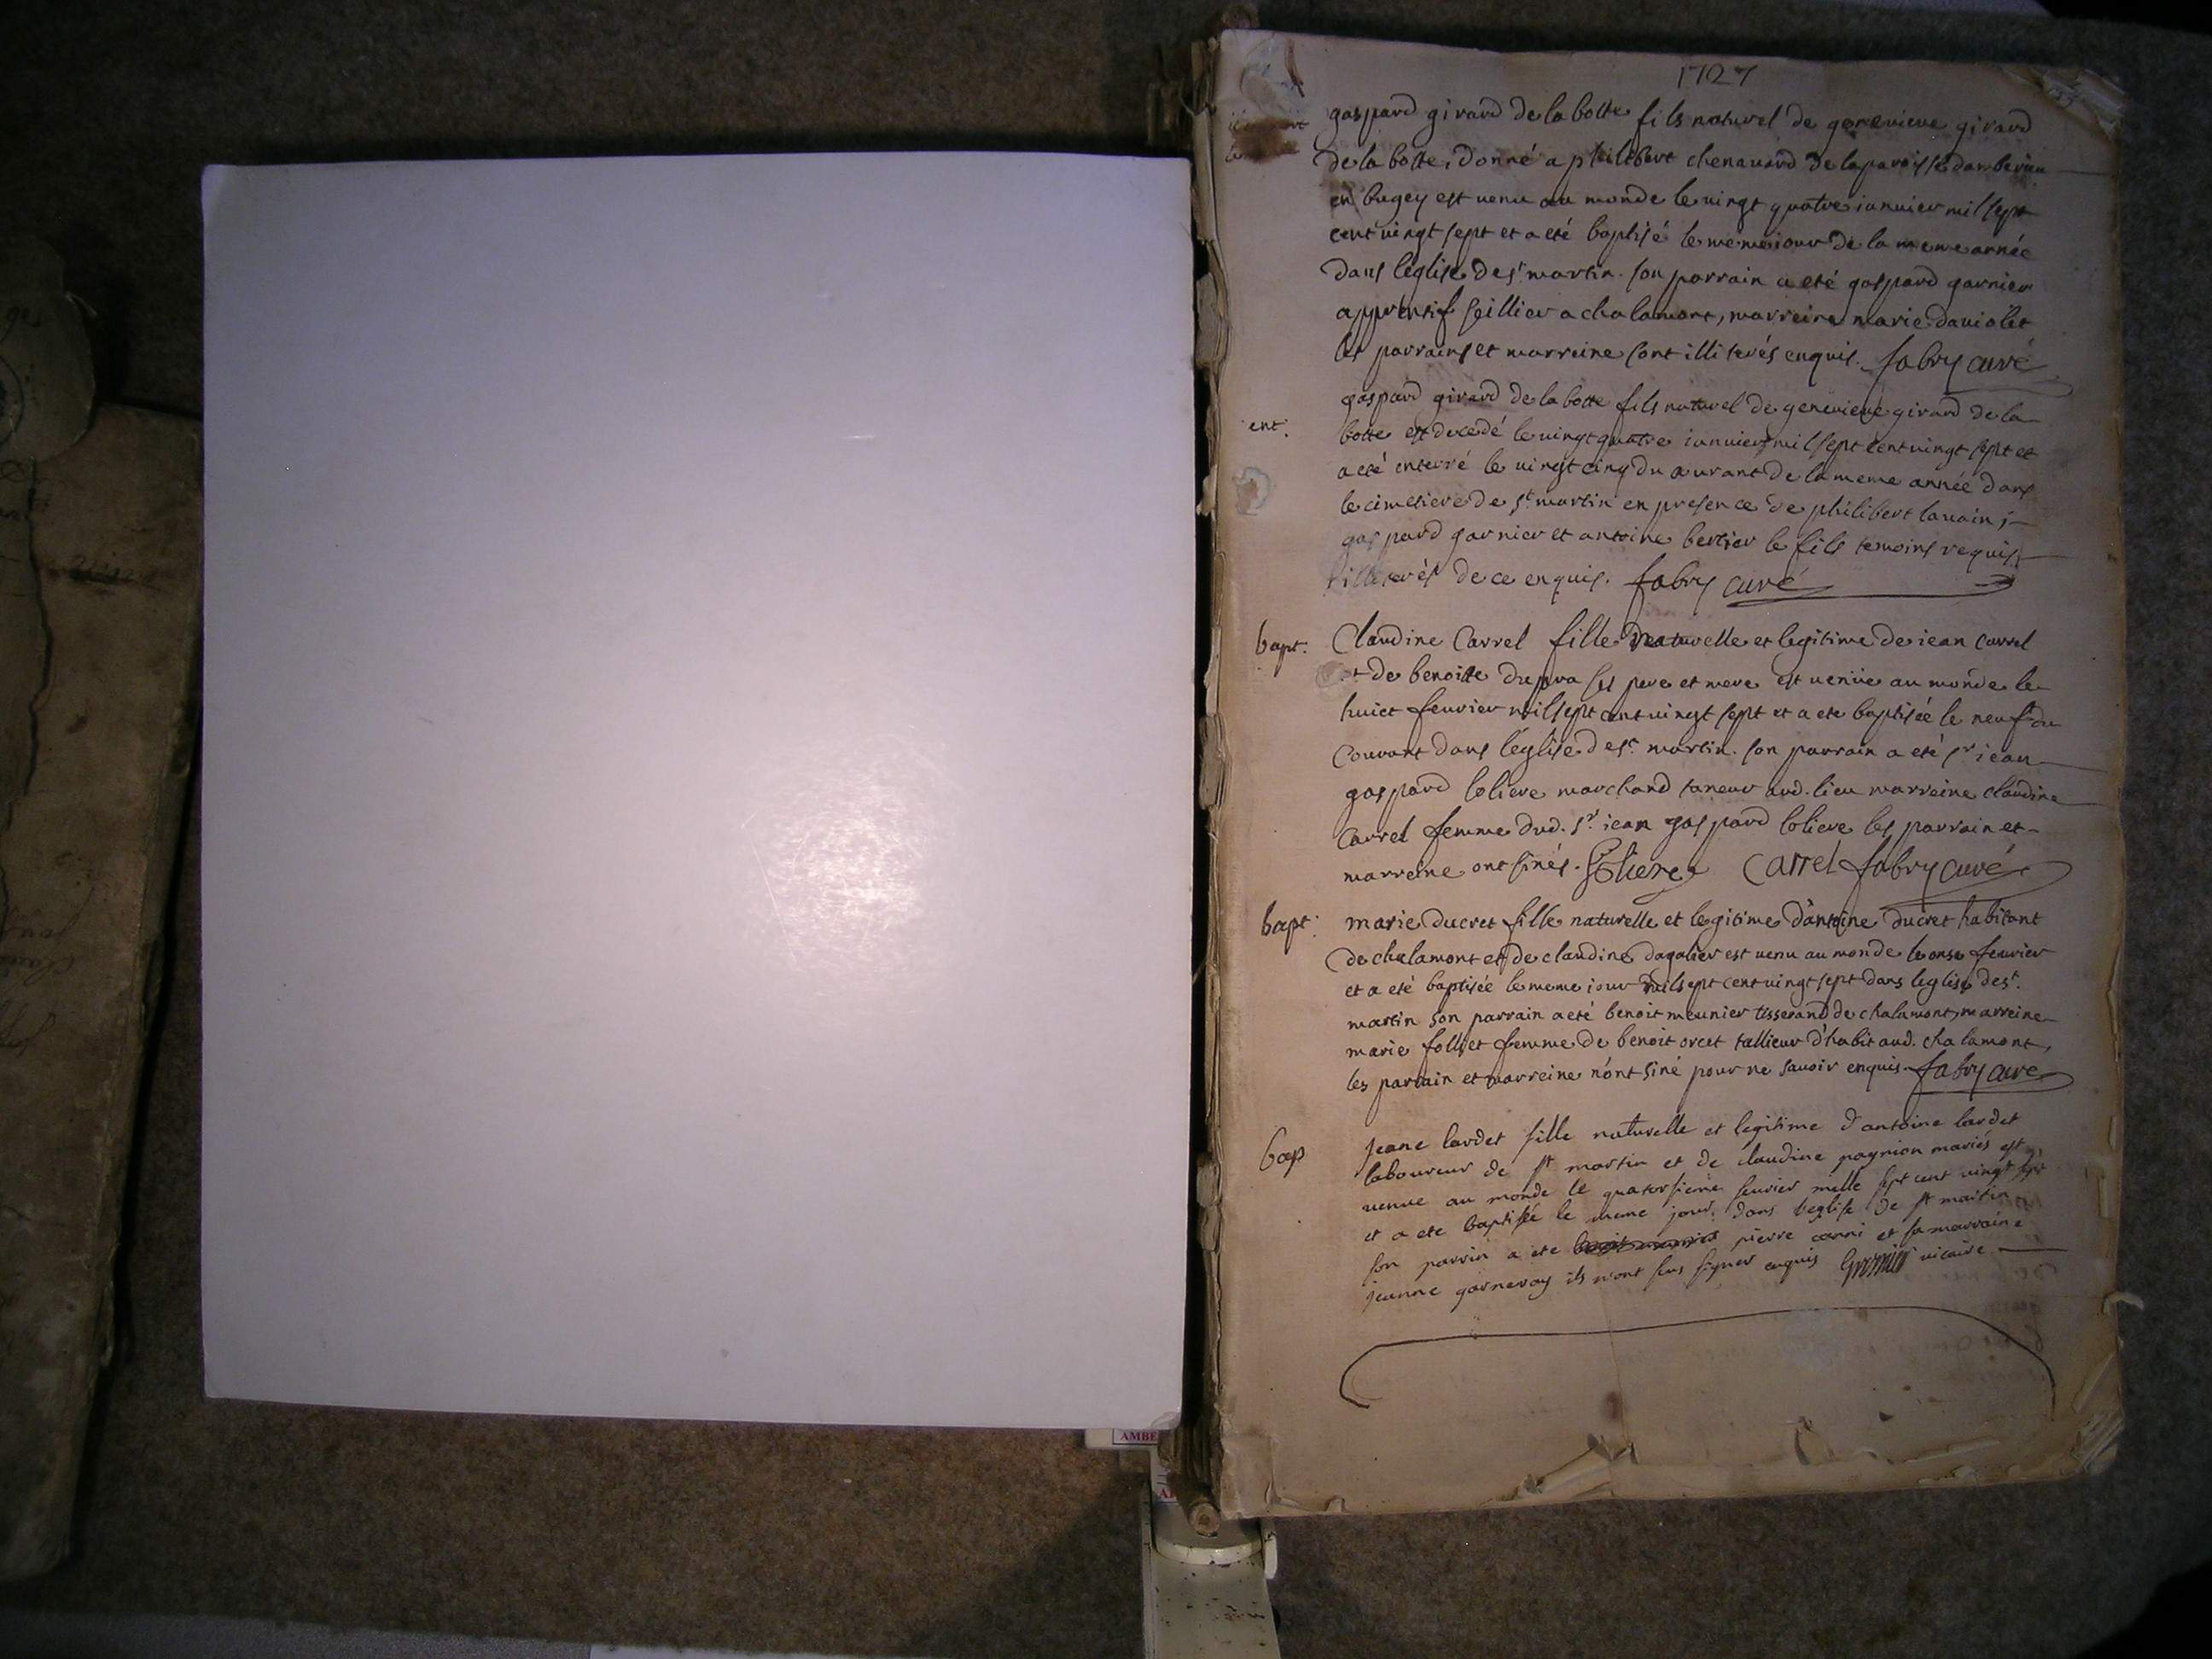 1727
gaspard girard de la botte fils naturel de genevieve girard
de la botte, donné a philibert chenavard de la paroisse
en bugey est venu au monde le vingt quatre ianvier mil sept
cent vingt sept et a eté baptisé le meme iour de la meme année
dans l'eglise de st martin. son parrain a eté gaspard garnier
apprentif seillier a chalamont, marreine marie daviolet
les parrains et marreine sont illiterés enquis. fabry curé
gaspard girard de la botte fils naturel de genevieve girard de la
ent. botte est decedé le vingt quatre ianvier mil sept cent vingt sept et
a eté enterré le vingt cinq du courant de la meme année dans
le cimetiere de st. martin en presence de philibert
gaspard garnier et antoine bertier le fils temoins requis
illiterés de ce enquis. fabry curé
bapt. Claudine Carrel fille naturelle et legitime de iean carrel
et de benoitte dupra ses pere et mere est venüe au monde le
huict fevrier mil sept cent vingt sept et a ete baptisée le neuf du
Courant dans l'eglise de st. martin. son parrain a eté sr iean
gaspard loliere marchand taneur aud. lieu marreine claudine
Carrel femme dud. sr. iean gaspard loliere les parrain et
marreine ont sinés. Loliere Carrel fabry curé
bapt. marie ducret fille naturelle et legitime d'antoine ducret habitant
de chalamont et de claudine dagalier est venu au monde le onse fevrier
et a eté baptisée le meme iour mil sept cent vingt sept dans leglise de st.
martin son parrain a eté benoit meunier tisserand de chalamont, marreine
marie folliet femme de benoit orcet tallieur d'habit aud. chalamont,
les parrain et marreine n'ont siné pour ne savoir enquis. fabry curé
bap jeane lardet fille naturelle et legitime d'antoine lardet
laboureur de st martin et de claudine pagnion mariés est
venue au monde le quatorsieme fevrier mille sept cent vingt sept
et a ete baptisée le meme jour dans l'eglise de st martin
son parrin a ete pierre et sa marraine
jeanne garneray ils n'ont sus signer enquis vicaire
AMBE